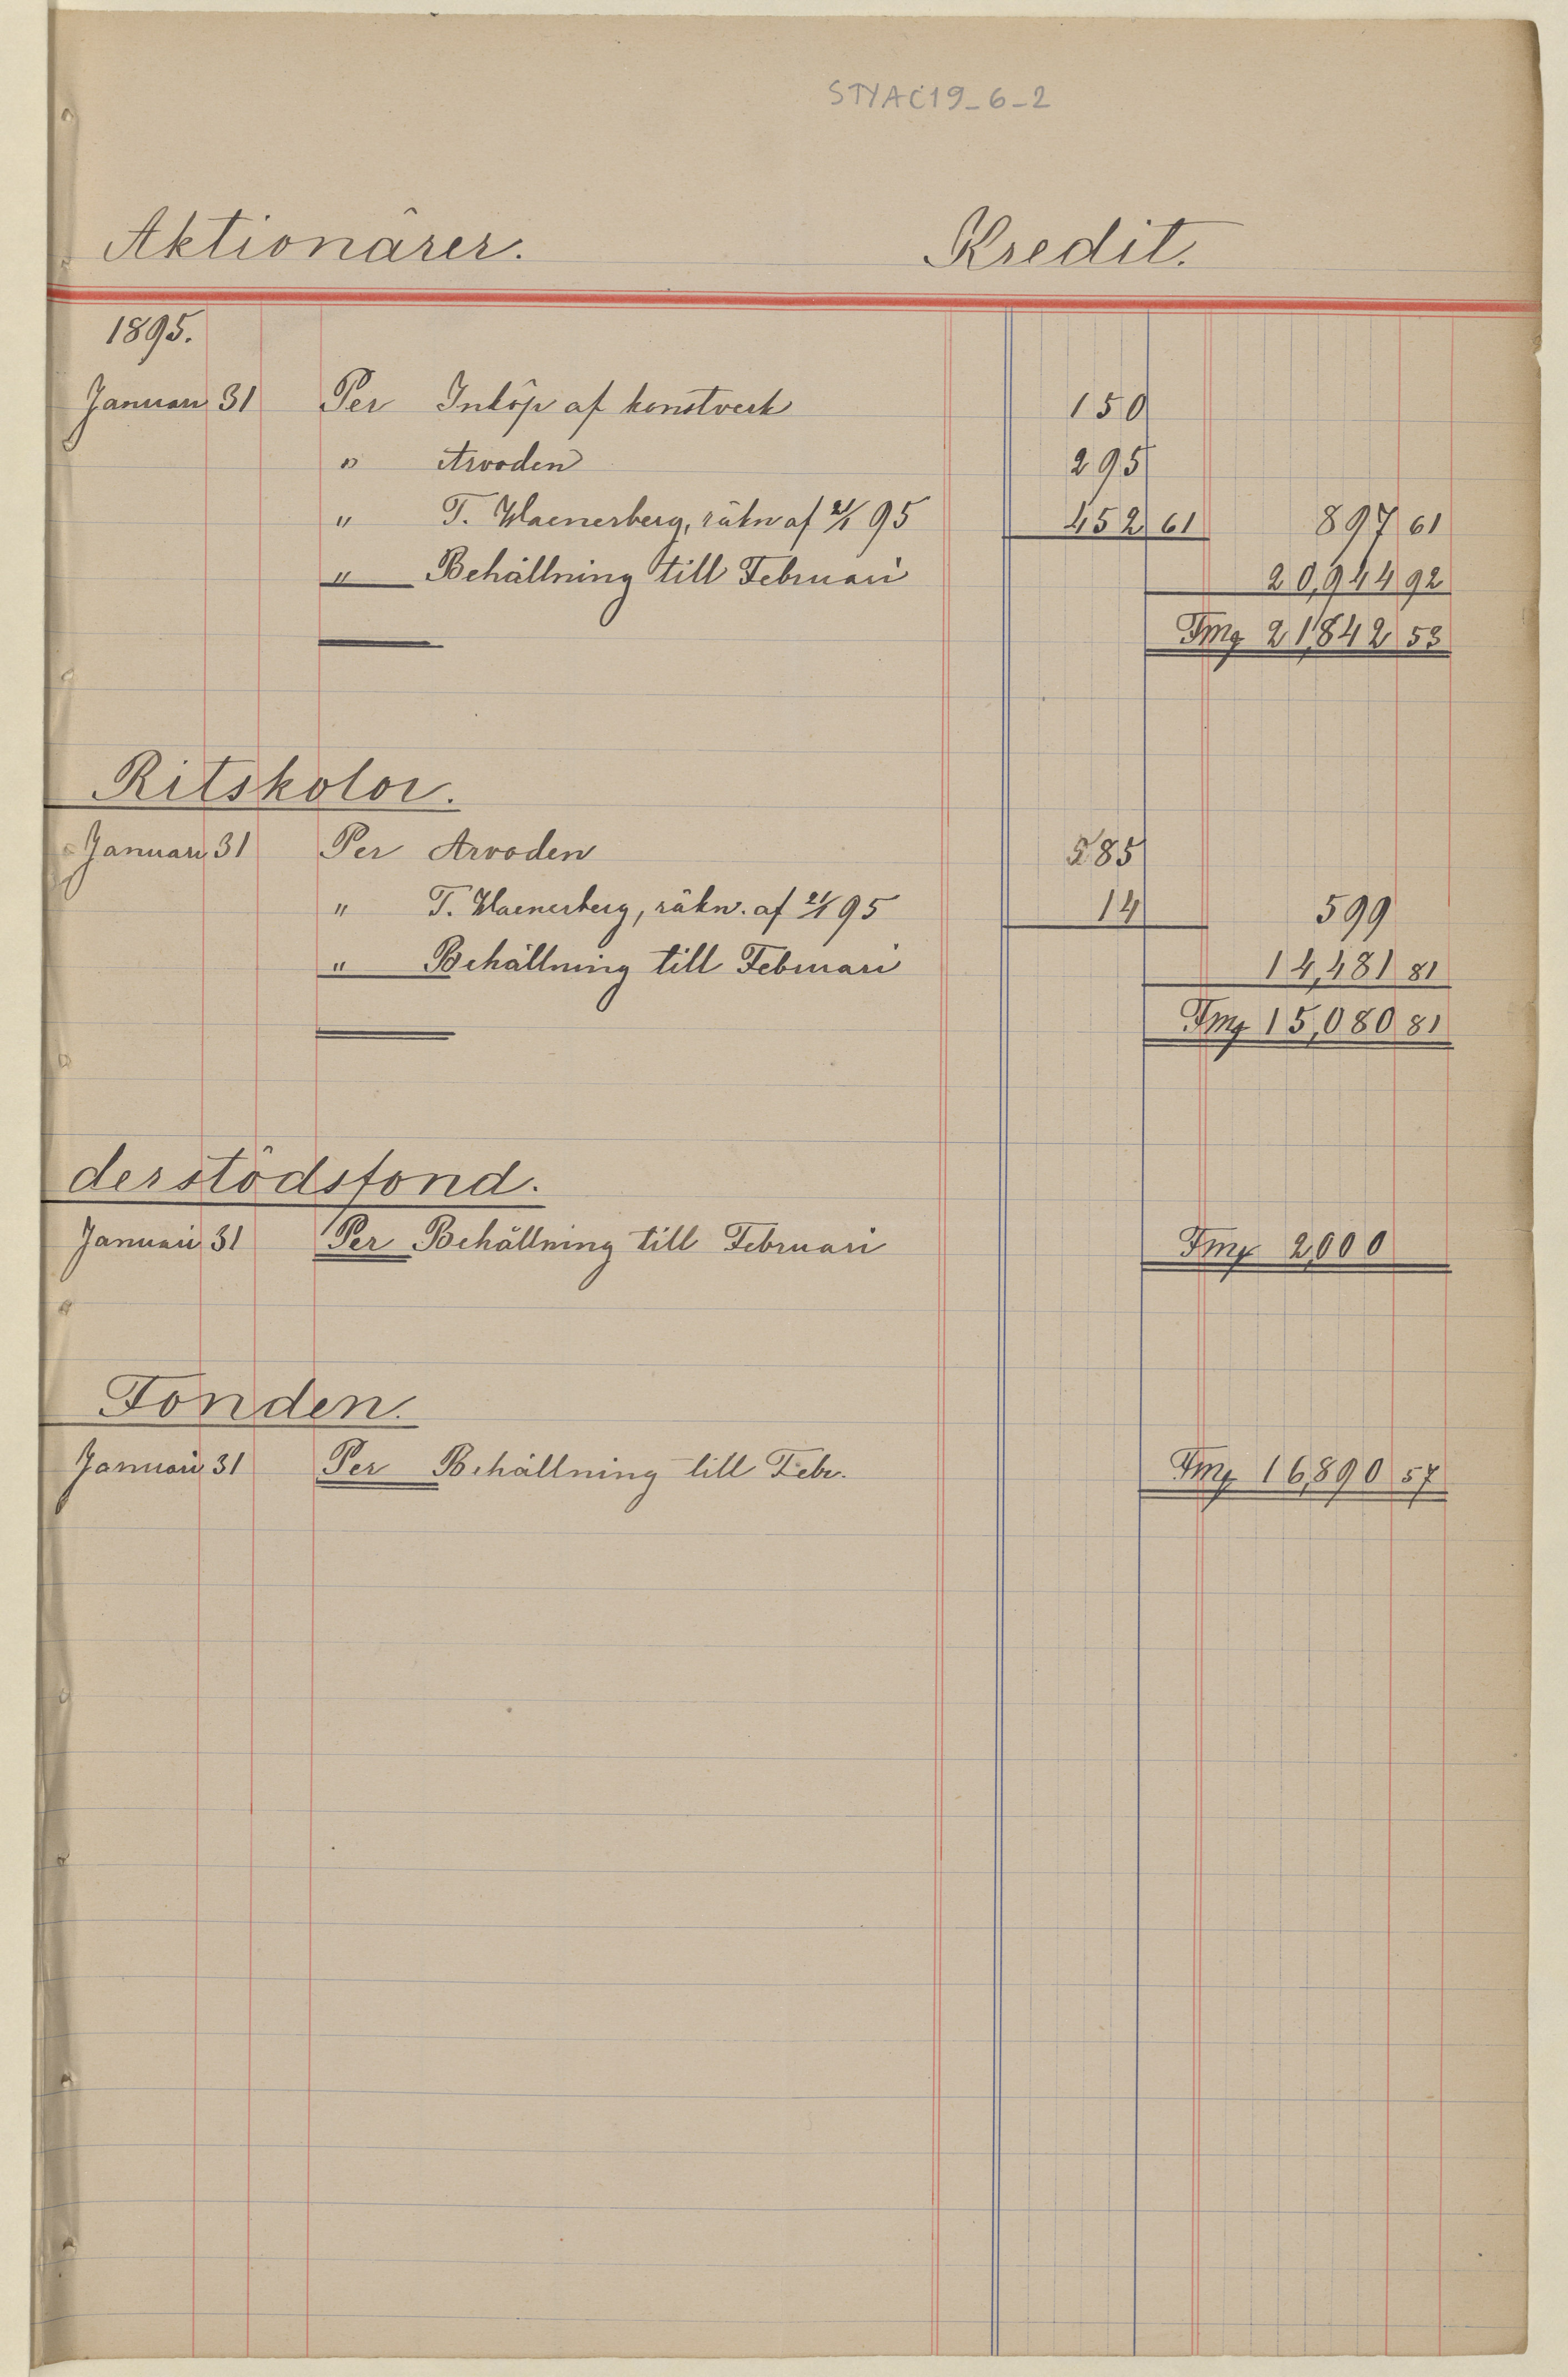 STYAC19_6_2
Aktionärer. Kredit.
1895.
Januari 31 Per Inköp af konstverk 150
" Arvoden 295
" T. Waenerberg, räkn af 21/1 95 452 61 897 61
" Behållning till Februari 20,944 92
Fmg 21,842 53
Ritskolor.
Januari 31 Per Arvoden 585
" T. Waenerberg, räkn. af 21/1 95 14 599
" Behållning till Februari 14,481 81
Fmg 15,080 81
derstödsfond.
Januari 31 Per Behållning till Februari Fmg 2,000
Fonden.
Januari 31 Per Behållning till Febr. Fmg 16,890 57